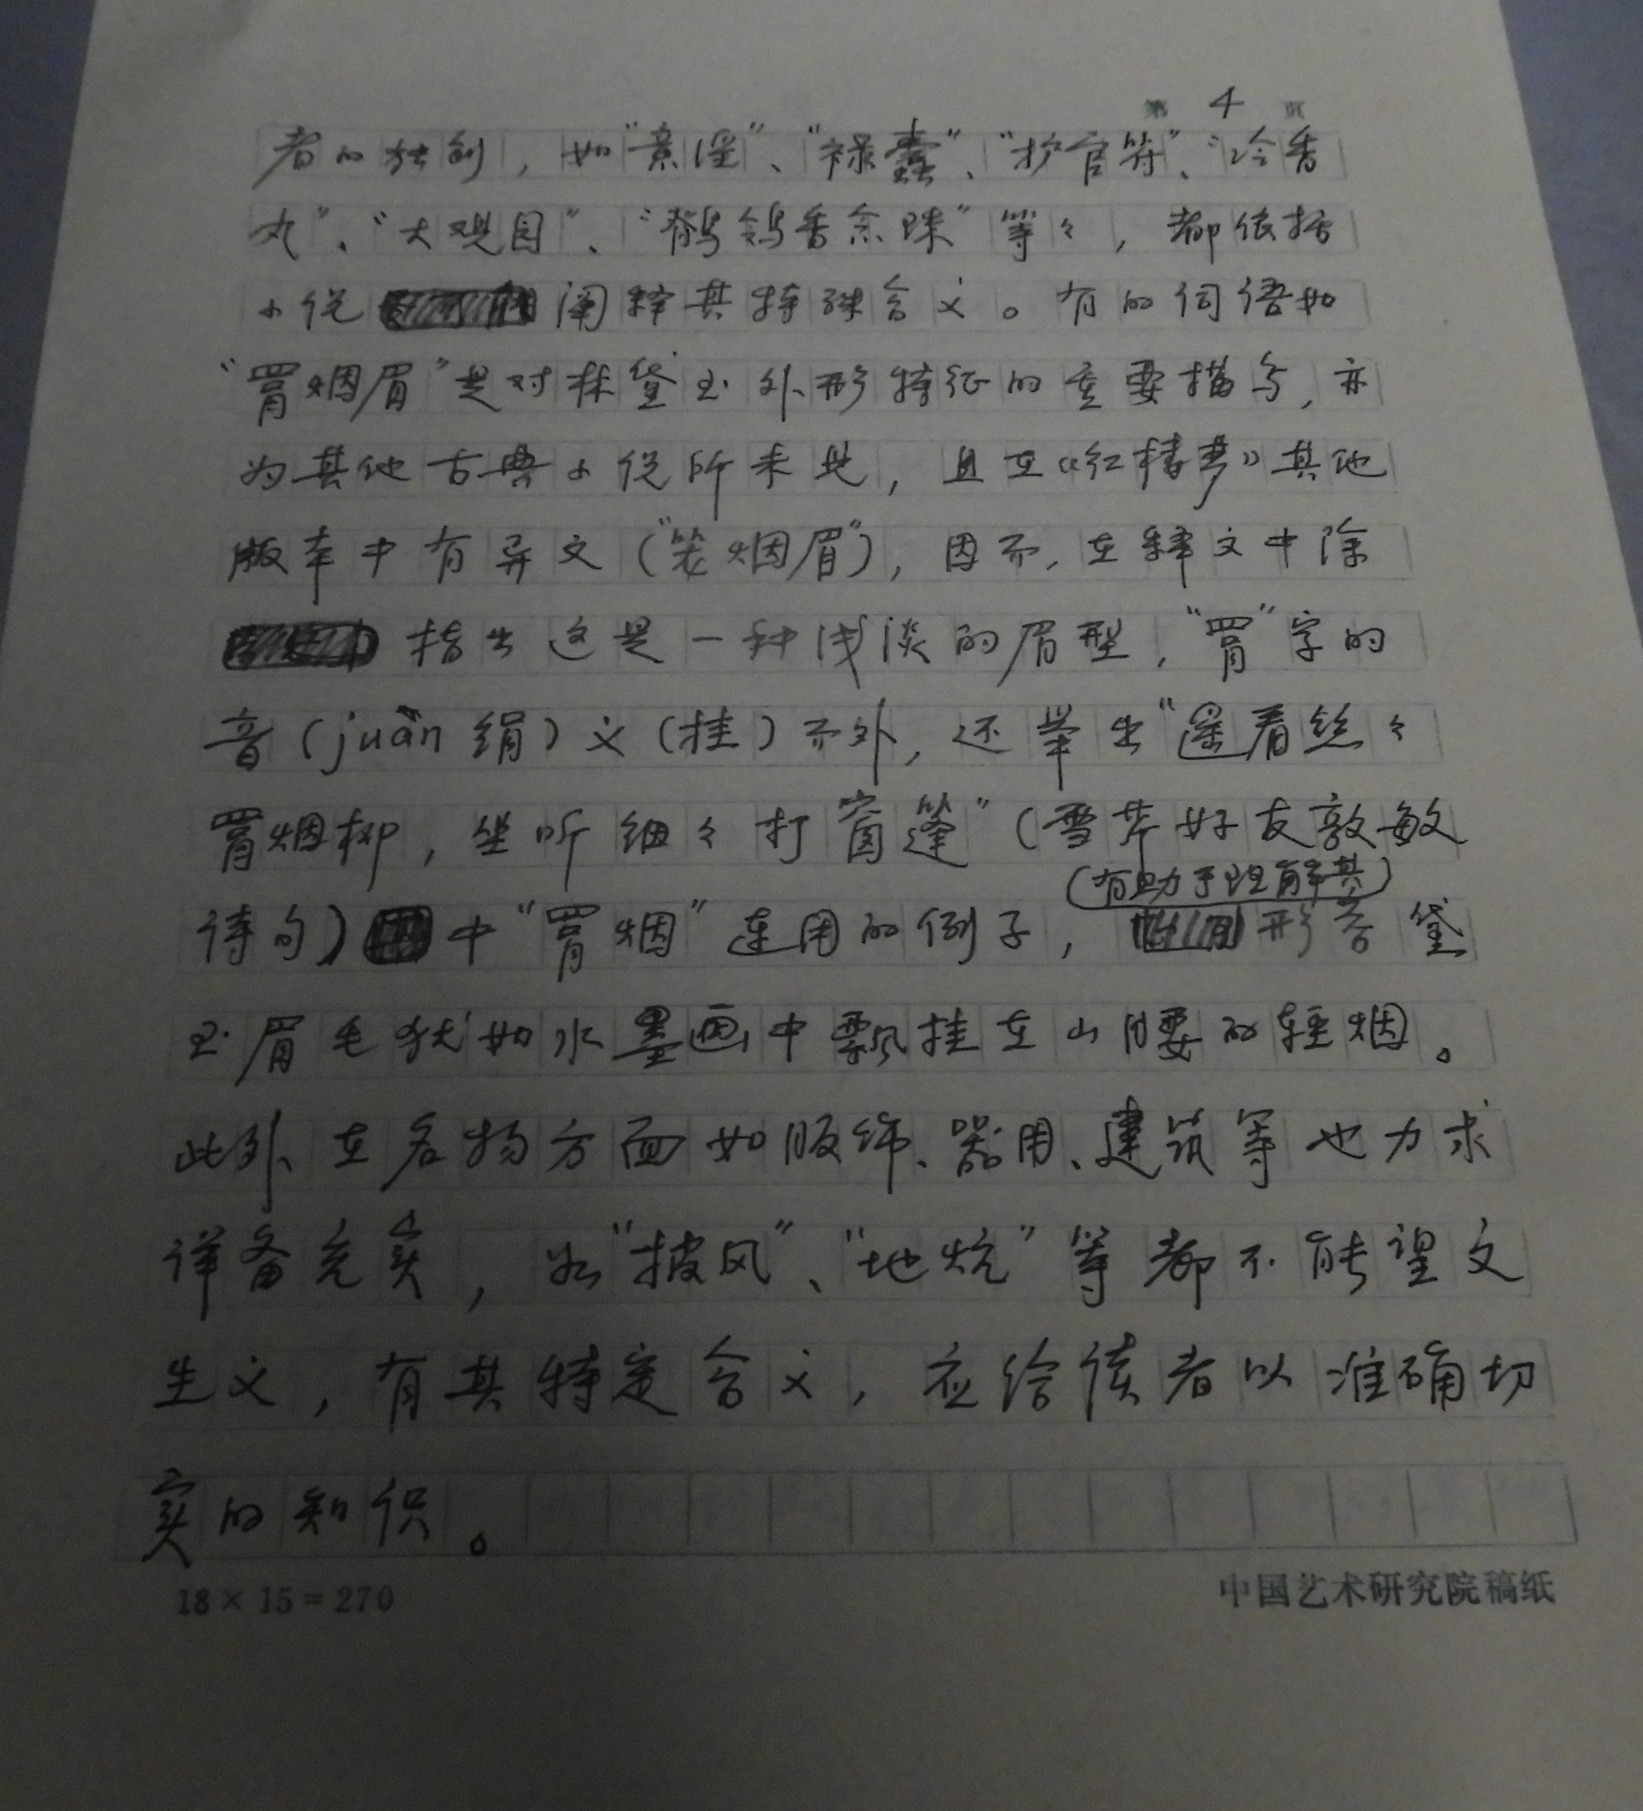 第 4 页
者的独创，如“意淫”、“禄蠹”、“护官符”、“冷香
丸”、“大观园”、“鹡鸰香念珠”等々，都依据
小说阐释其特殊含义。有的词语如
“罥烟眉”是对林黛玉外形特征的重要描写，亦
为其他古典小说所未见，且在《红楼梦》其他
版本中有异文（“笼烟眉”），因而，在释文中除
指出这是一种浅淡的眉型，“罥”字的
音（juàn 绢）义（挂）而外，还举出“遥看丝々
罥烟柳，坐听细々打窗篷”（雪芹好友敦敏
（有助于理解其）
诗句）中“罥烟”连用的例子，形容黛
玉眉毛犹如水墨画中飘挂在山腰的轻烟。
此外在名物方面如服饰、器用、建筑等也力求
详备充实，如“披风”、“地炕”等都不能望文
生义，有其特定含义，应给读者以准确切
实的知识。
18×15=270
中国艺术研究院稿纸